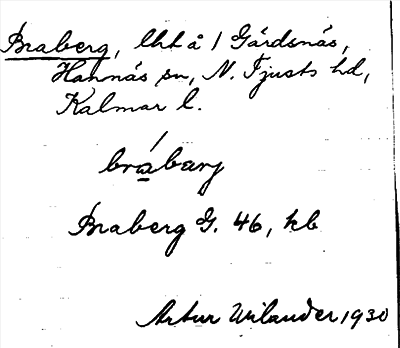 Braberg, lht å 1 Gärdsnäs,
Hannäs sn, N. Tjusts hd,
Kalmar l.
brábarj
Braberg G. 46, kb
Artur Wilander 1930